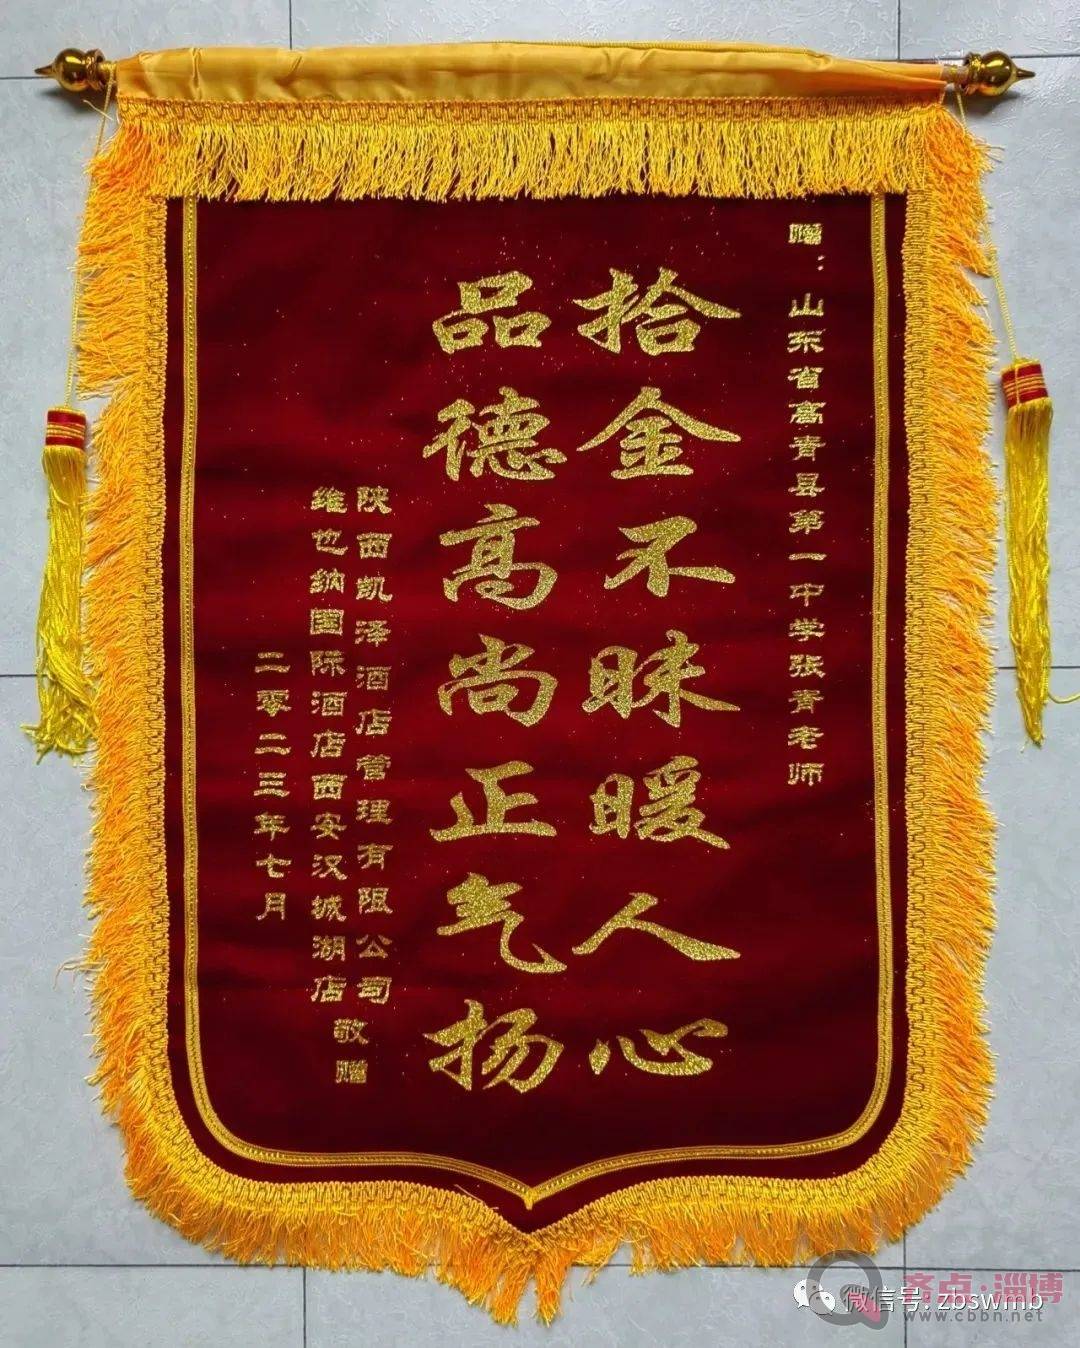 赠：山东省高青县第一中学张青老师
拾金不昧暖人心
品德高尚正气扬
陕西凯泽酒店管理有限公司
维也纳国际酒店西安汉城湖店
敬赠
二零二三年七月
齐点·淄博
微信号: zbswmb
www.cbbn.net